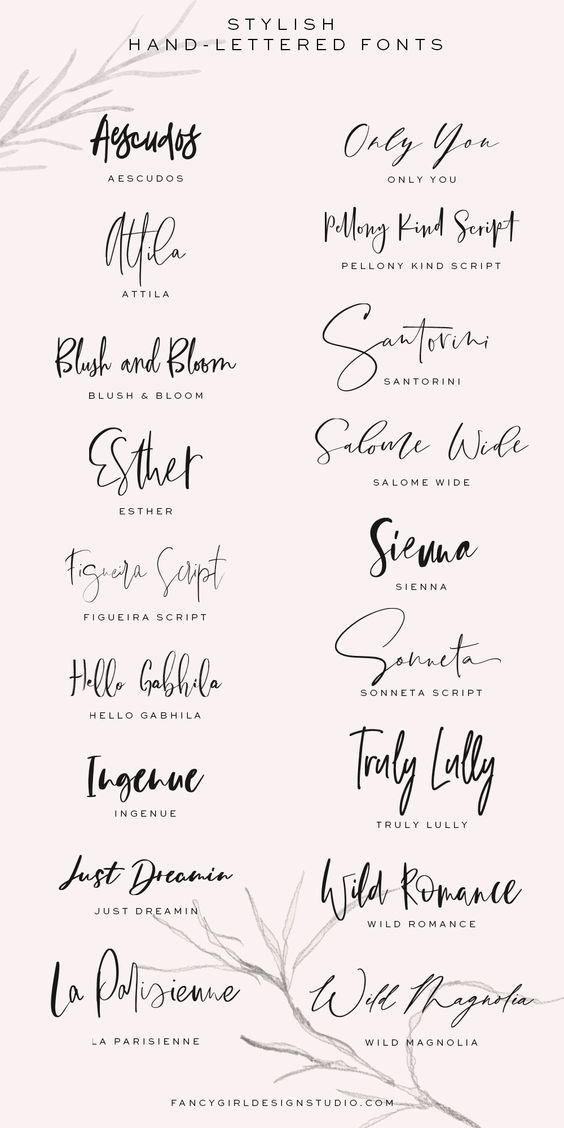 STYLISH
HAND-LETTERED FONTS
Aescudos
AESCUDOS
Attila
ATTILA
Blush and Bloom
BLUSH & BLOOM
Esther
ESTHER
Figueira Script
FIGUEIRA SCRIPT
Hello Gabhila
HELLO GABHILA
Ingenue
INGENUE
Just Dreamin
JUST DREAMIN
La Parisienne
LA PARISIENNE
Only You
ONLY YOU
Pellony Kind Script
PELLONY KIND SCRIPT
Santorini
SANTORINI
Salome Wide
SALOME WIDE
Sienna
SIENNA
Sonneta
SONNETA SCRIPT
Truly Lully
TRULY LULLY
Wild Romance
WILD ROMANCE
Wild Magnolia
WILD MAGNOLIA
FANCYGIRLDESIGNSTUDIO.COM